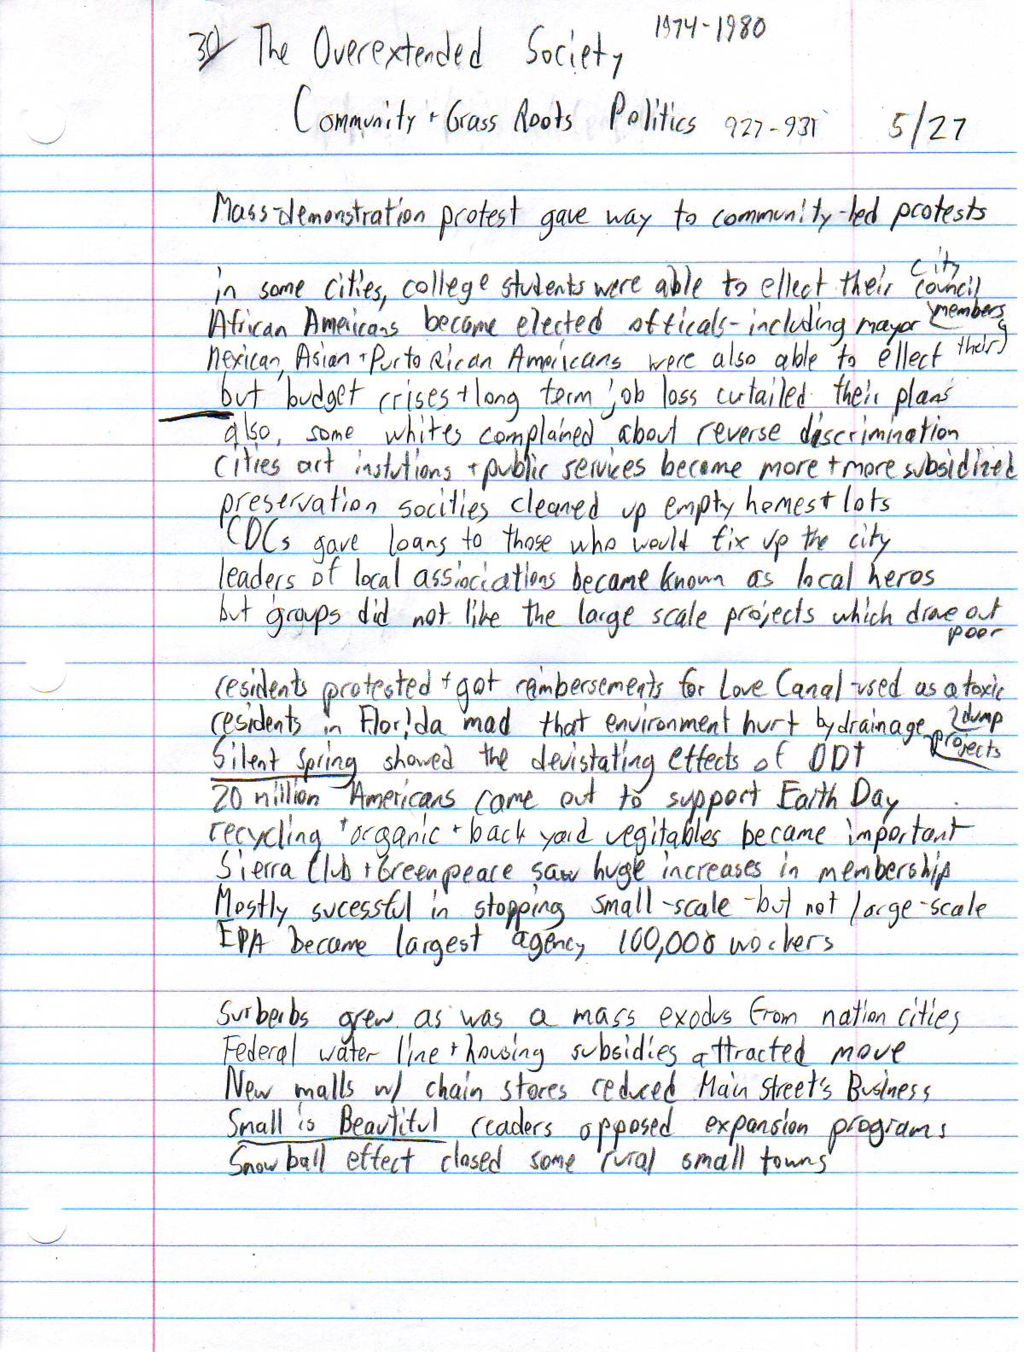 30 The Overextended Society 1974-1980
Community + Grass Roots Politics 927-931 5/27
Mass-demonstration protest gave way to community-led protests
in some cities, college students were able to ellect their city council members
African Ameiicans become elected officals - including mayor
Mexican, Asian + Purto Rican Ameiicans were also able to ellect theirs
but budget crises + long term job loss curtailed their plans
also, some whites complained about reverse discrimination
cities art instutions + public services became more + more subsidized
preservation socities cleaned up empty homes + lots
CDCs gave loans to those who would fix up the city
leaders of local assiociations became known as local heros
but groups did not like the large scale projects which drove out poor
residents protested + got reimbersements for Love Canal - used as a toxic dump
residents in Florida mad that environment hurt by drainage projects
Silent Spring showed the devistating effects of DDT
20 million Americans came out to support Earth Day
recycling + organic + back yard vegitables became important
Sierra Club + Greenpeace saw huge increases in membership
Mostly sucessful in stopping small-scale - but not large-scale
EPA became largest agency 100,000 workers
Surberbs grew as was a mass exodus from nation cities
Federal water line + housing subsidies attracted move
New malls w/ chain stores reduced Main Street's Business
Small is Beautiful readers opposed expansion programs
Snowball effect closed some rural small towns